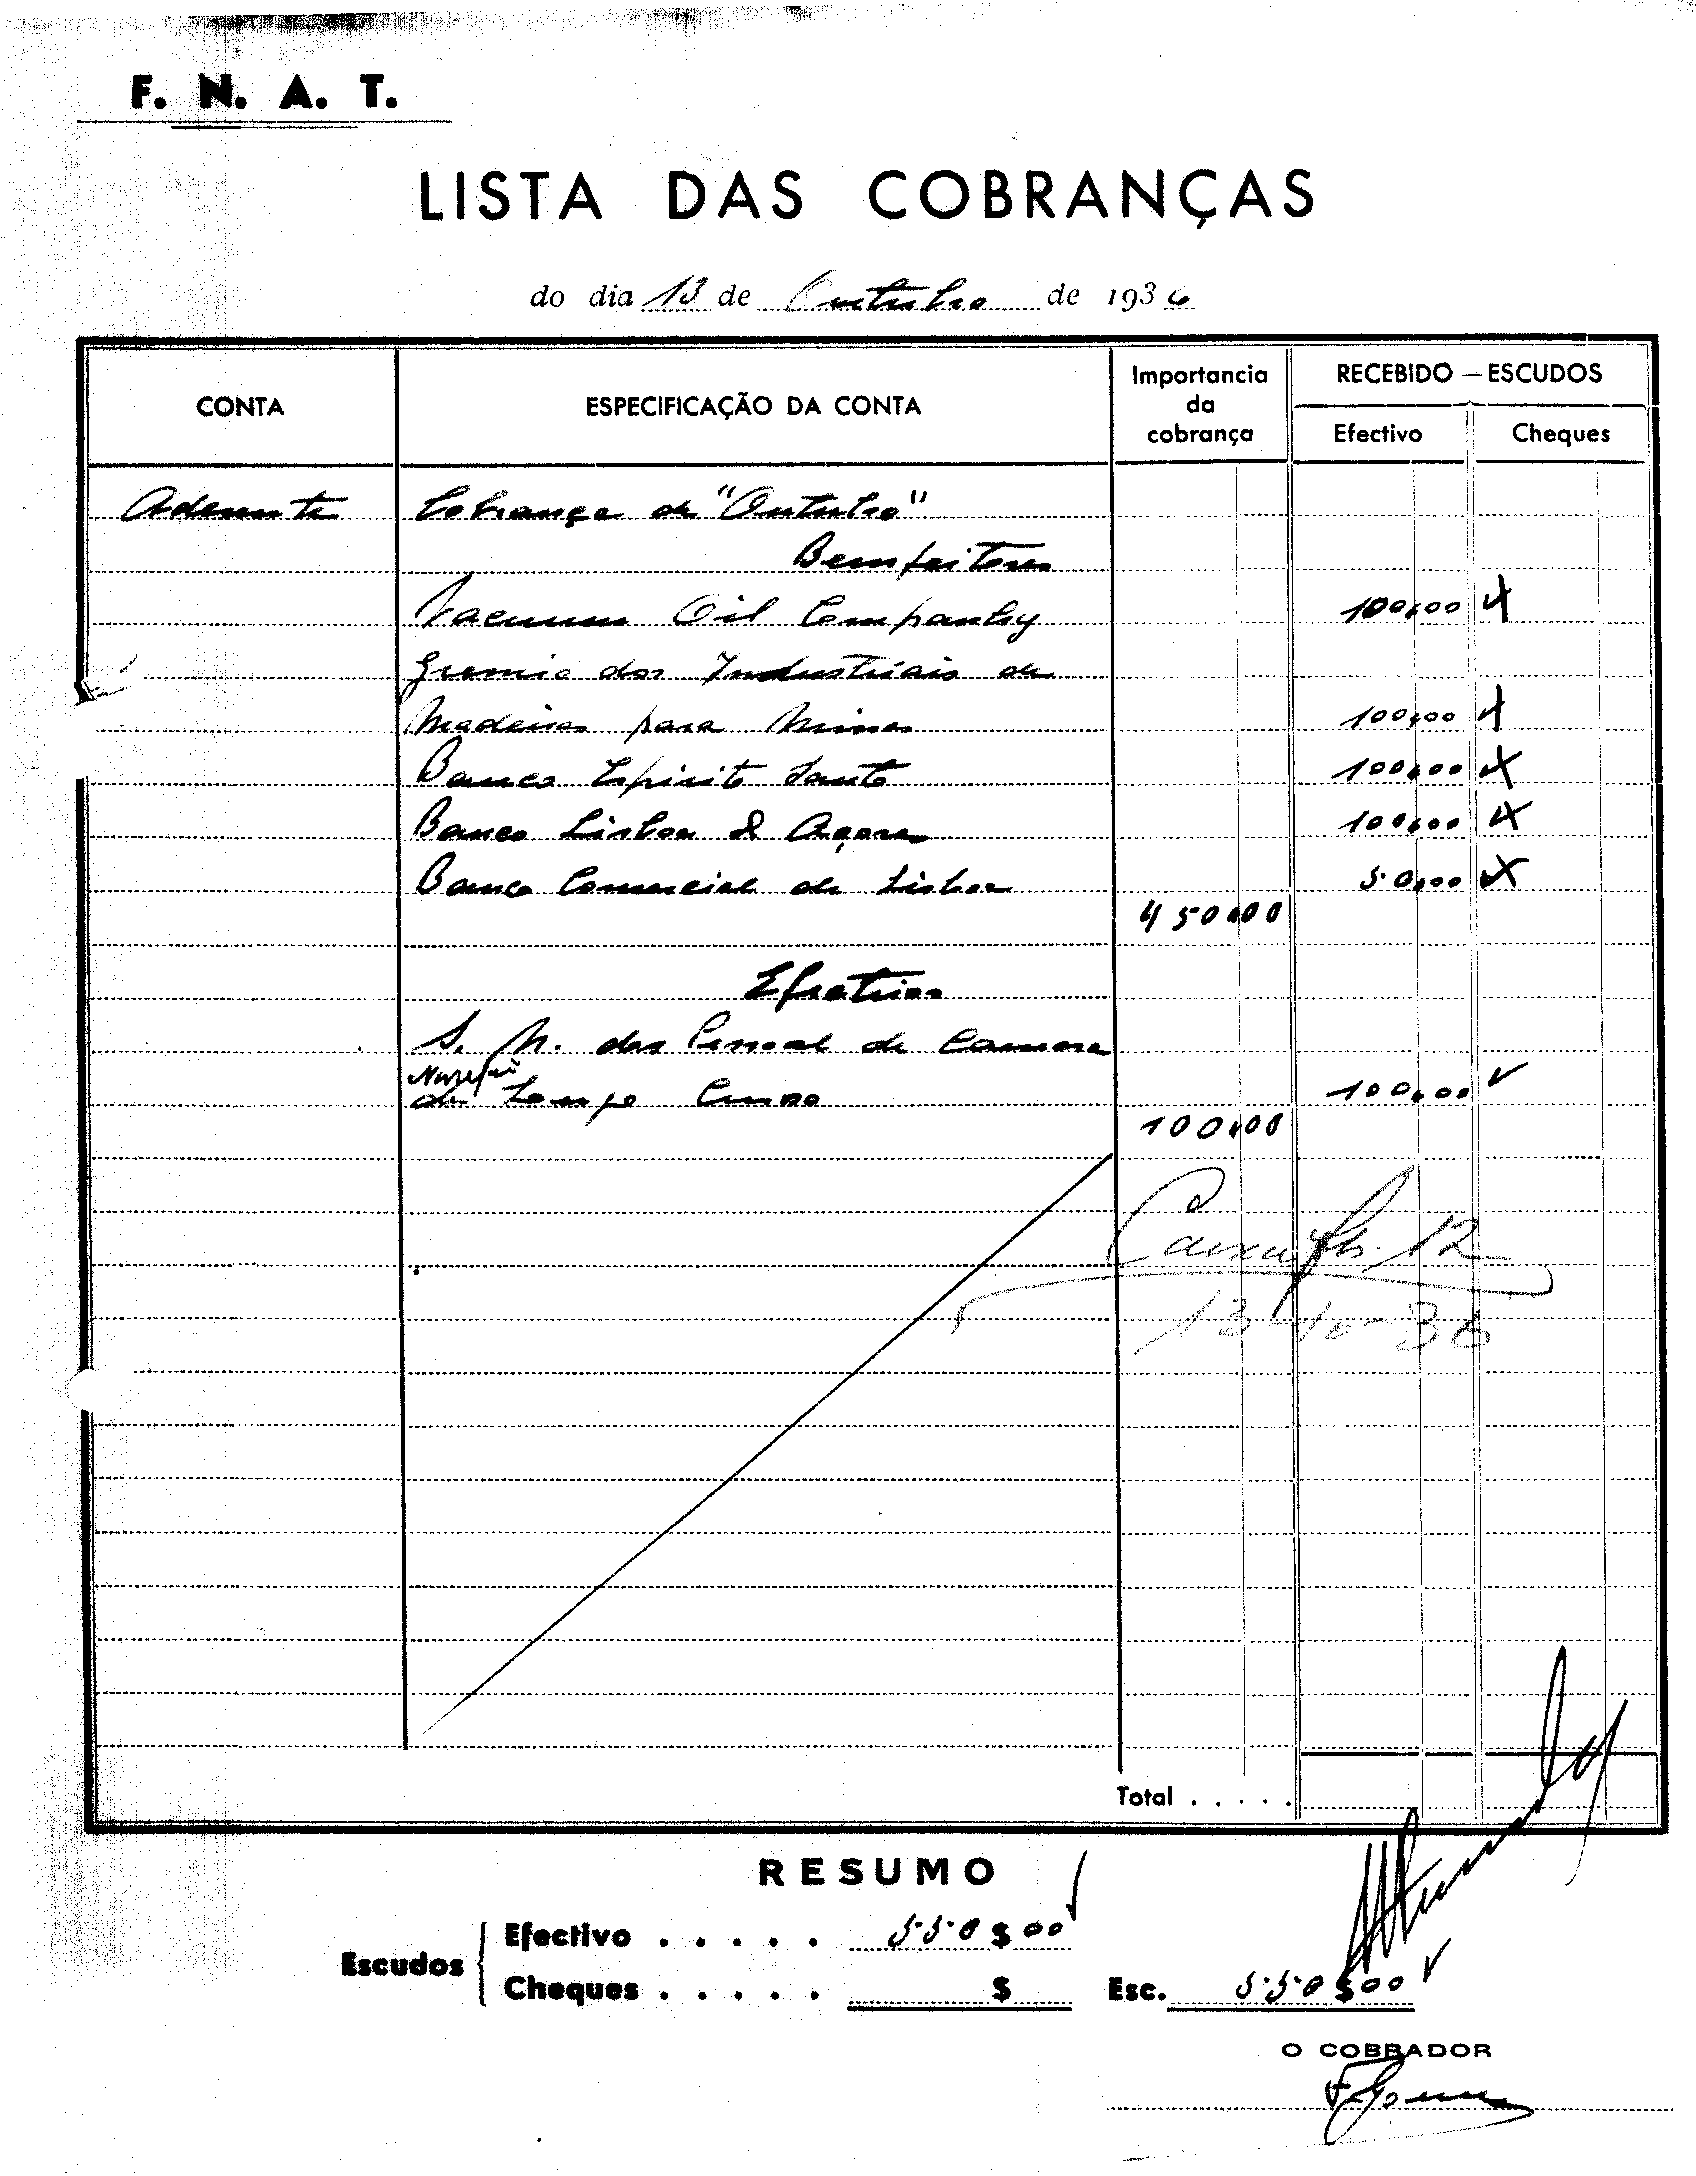 F. N. A. T.
LISTA DAS COBRANÇAS
do dia 13 de Outubro de 1936
CONTA
ESPECIFICAÇÃO DA CONTA
Importancia da cobrança
RECEBIDO — ESCUDOS
Efectivo
Cheques
Aderente Cobrança de "Outubro"
Bemfeitores
Vacuum Oil Company 100,00
Gremio dos Industriais de
Madeiras para Minas 100,00
Banco Espirito Santo 100,00
Banco Lisboa & Açores 100,00
Banco Comercial de Lisboa 50,00
450,00
Efectivos
S. N. do Pessoal de Camara
de Longo Curso 100,00
100,00
Caixa fls. 12
13-10-36
Total . . . . .
RESUMO
Escudos
Efectivo . . . . . 550$00
Cheques . . . . . $
Esc. 550$00
O COBRADOR